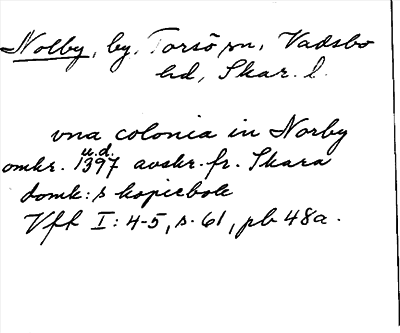 Nolby, by, Torsö sn, Vadsbo
hd, Skar. l.
vna colonia in Norby
u.d.
omkr. 1397 avskr. fr. Skara
domk:s kopiebok
Vfh I: 4-5, s. 61, pb 48a.